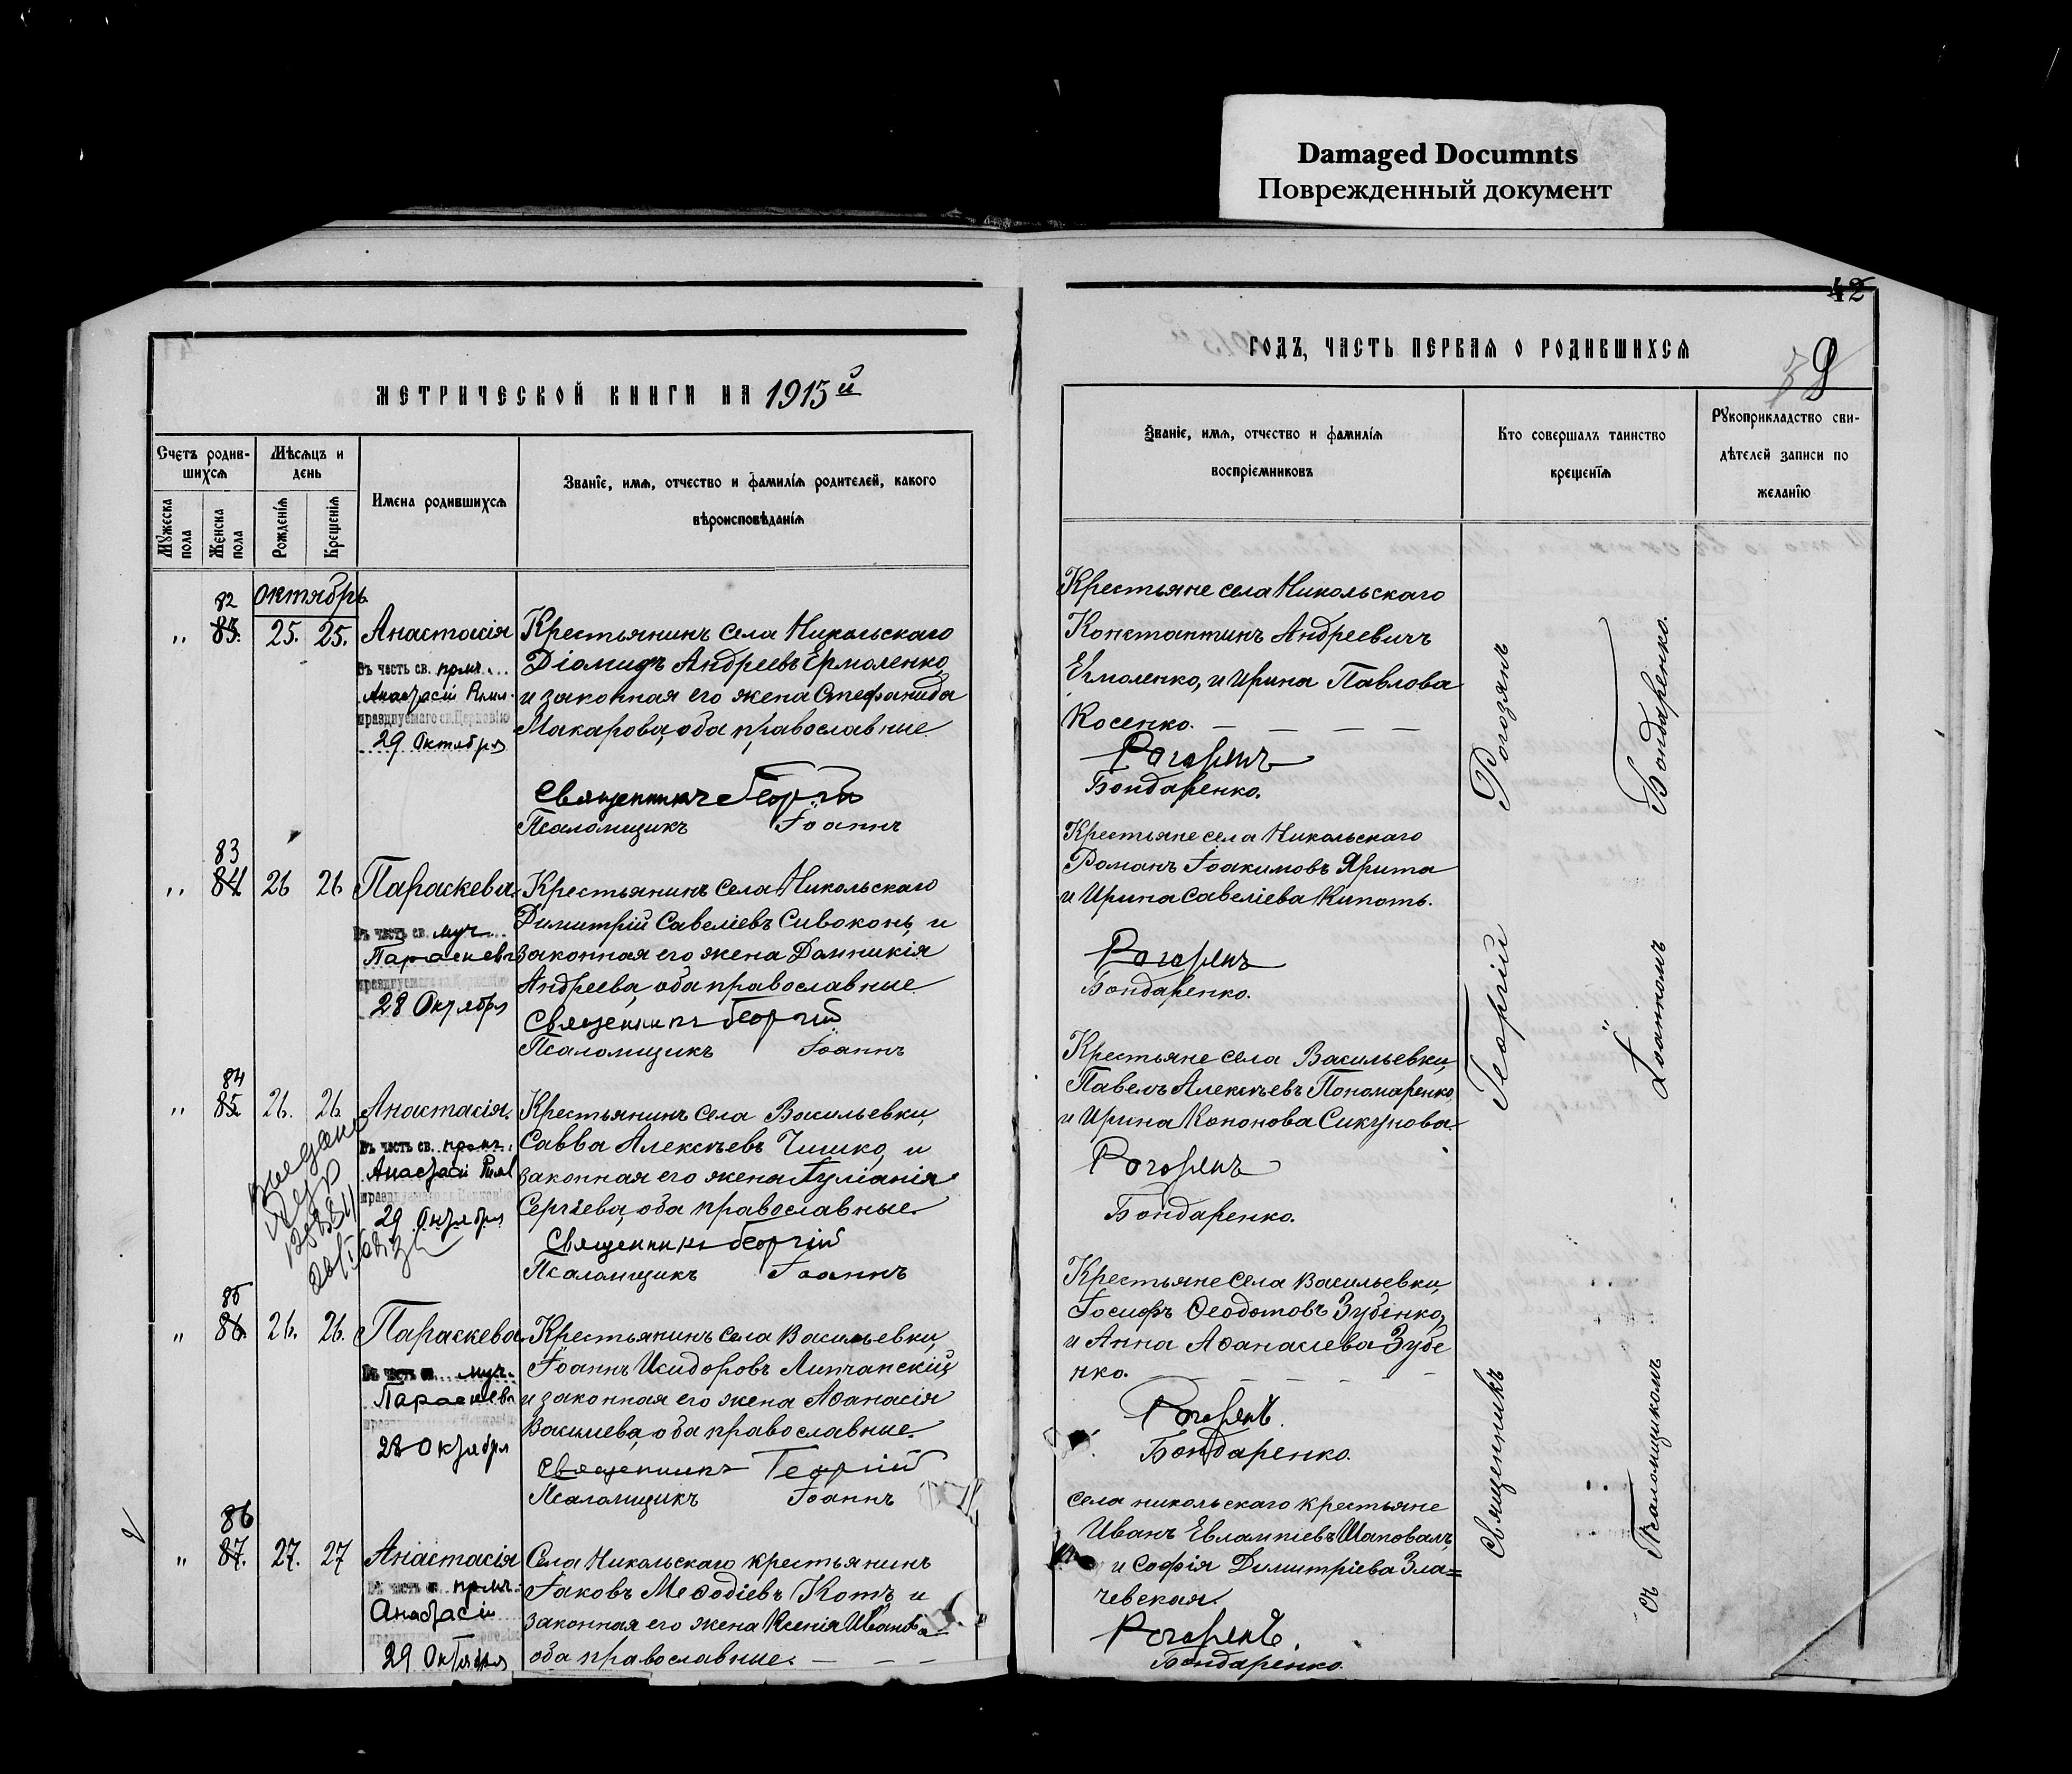 Damaged Documnts
Поврежденный документ
42
МЕТРИЧЕСКОЙ КНИГИ НА 1915й
Счетъ родив-
шихся
Мѣсяцъ и
день
Мужеска пола
Женска пола
Рожденія
Крещенія
Имена родившихся
Званіе, имя, отчество и фамилія родителей, какого
вѣроисповѣданія
октябрь
82
" 83. 25. 25. Анастасія
Въ честь св. прмч.
Анастасіи Римл.
празднуемаго св. Церковію
29 Октября
Крестьянинъ села Никольскаго
Діомидъ Андреевъ Ермоленко,
и законная его жена Стефанида
Макарова, оба православные
Священникъ Георгій
Псаломщикъ Іоаннъ
83
" 84 26 26 Параскева
Въ честь св. муч.
Параскевы
празднуемаго св. Церковію
28 Октября
Крестьянинъ села Никольскаго
Димитрій Савеліевъ Сивоконь, и
законная его жена Домникія
Андреева, оба православные
Священникъ Георгій
Псаломщикъ Іоаннъ
84
" 85. 26. 26 Анастасія.
Въ честь св. прмч.
Анастасіи Римл
празднуемаго св. Церковію
29 Октября
Крестьянинъ села Васильевки,
Савва Алексѣевъ Чишко, и
законная его жена Іуліанія
Сергіева, оба православные.
Священникъ Георгій
Псаломщикъ Іоаннъ
85
" 86. 26. 26. Параскева
Въ честь св. муч.
Параскевы
28 Октября
Крестьянинъ села Васильевки,
Іоаннъ Исидоровъ Липчанскій
и законная его жена Аѳанасія
Василиева, оба православные.
Священникъ Георгій
Псаломщикъ Іоаннъ
86
" 87. 27. 27 Анастасія
Въ честь св. прмч.
Анастасіи
29 Октября
Села Никольскаго крестьянинъ
Іаковъ Меѳодіевъ Котъ, и
законная его жена Ксенія Иванова
оба православные. — — —
ГОДЪ, ЧАСТЬ ПЕРВАЯ О РОДИВШИХСЯ
Званіе, имя, отчество и фамилія
воспріемниковъ
Кто совершалъ таинство
крещенія
Рукоприкладство сви-
дѣтелей записи по
желанію
Крестьяне села Никольскаго
Константинъ Андреевичъ
Ермоленко, и Ирина Павлова
Косенко. — — — —
Рогозянъ
Бондаренко.
Крестьяне села Никольскаго
Романъ Іоакимовъ Ярита
и Ирина Савеліева Кипоть.
Рогозянъ
Бондаренко.
Крестьяне села Васильевки,
Павелъ Алексѣевъ Пономаренко,
и Ирина Кононова Сикунова.
Рогозянъ
Бондаренко.
Крестьяне села Васильевки,
Іосифъ Ѳеодотовъ Зубенко,
и Анна Аѳанасіева Зубе
нко. — — — —
Рогозянъ.
Бондаренко.
села никольскаго крестьяне
Иванъ Евлампіевъ Шаповалъ,
и Софія Димитріева Зла=
чевская.
Рогозянъ.
Бондаренко.
Священникъ Георгій Рогозянъ
съ Псаломщикомъ Іоанномъ Бондаренко.